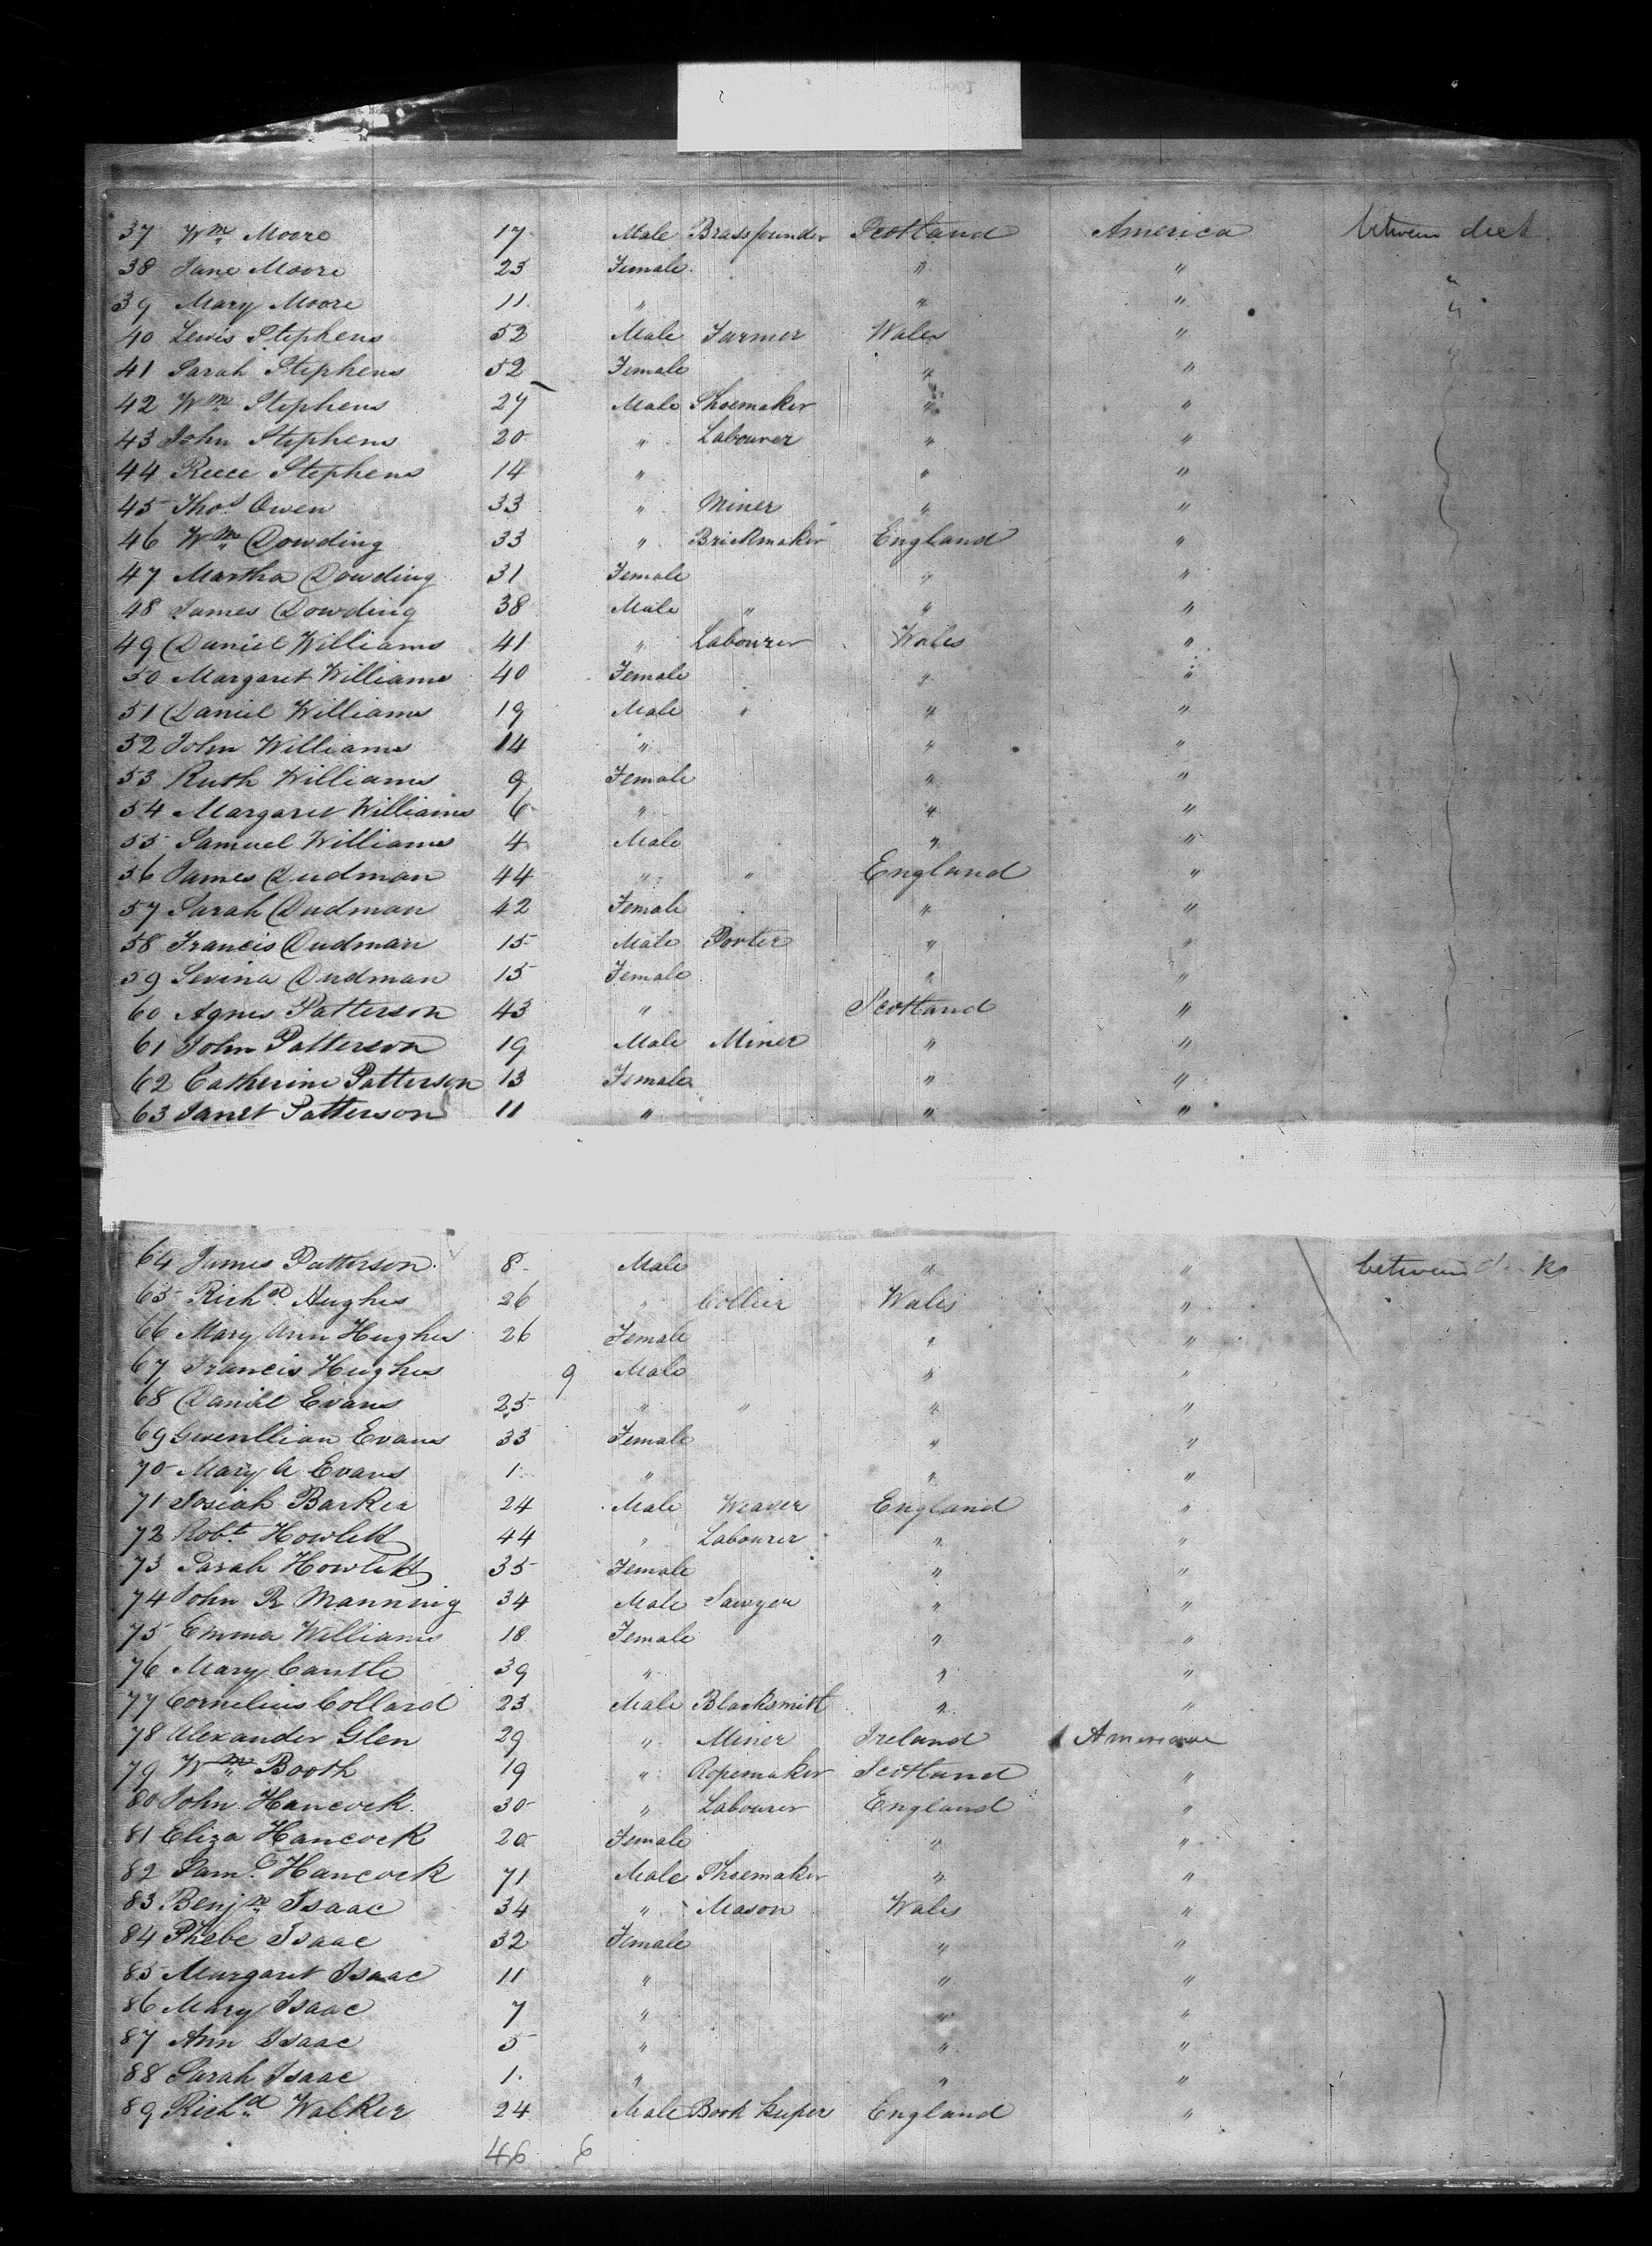 37 Wm Moore 17 Male Brassfounder Scotland America between deck
38 Jane Moore 23 Female " " "
39 Mary Moore 11 " " " "
40 Lewis Stephens 52 Male Farmer Wales "
41 Sarah Stephens 52 Female " "
42 Wm Stephens 27 Male Shoemaker " "
43 John Stephens 20 " Labourer " "
44 Reece Stephens 14 " " "
45 Thos Owen 33 " Miner " "
46 Wm Dowding 33 " Brickmaker England "
47 Martha Dowding 31 Female " "
48 James Dowding 38 Male " " "
49 Daniel Williams 41 " Labourer Wales "
50 Margaret Williams 40 Female " "
51 Daniel Williams 19 Male " " "
52 John Williams 14 " " "
53 Ruth Williams 9 Female " "
54 Margaret Williams 6 " " "
55 Samuel Williams 4 Male " "
56 James Dudman 44 " " England "
57 Sarah Dudman 42 Female " "
58 Francis Dudman 15 Male Porter " "
59 Levina Dudman 15 Female " "
60 Agnes Patterson 43 " Scotland "
61 John Patterson 19 Male Miner " "
62 Catherine Patterson 13 Female " "
63 Janet Patterson 11 " " "
64 James Patterson 8 Male " " between
65 Richd Hughes 26 " Collier Wales "
66 Mary Ann Hughes 26 Female " "
67 Francis Hughes 9 Male " "
68 Daniel Evans 25 " " " "
69 Gwenllian Evans 33 Female " "
70 Mary A Evans 1 " " "
71 Josiah Barker 24 Male Weaver England "
72 Robt Howlett 44 " Labourer " "
73 Sarah Howlett 35 Female " "
74 John R Manning 34 Male Sawyer " "
75 Emma Williams 18 Female " "
76 Mary Cantle 39 " " "
77 Cornelius Collard 23 Male Blacksmith " "
78 Alexander Glen 29 " Miner Ireland
79 Wm Booth 19 " Ropemaker Scotland "
80 John Hancock 30 " Labourer England "
81 Eliza Hancock 20 Female " "
82 Saml Hancock 71 Male Shoemaker " "
83 Benjn Isaac 34 " Mason Wales "
84 Phebe Isaac 32 Female " "
85 Margaret Isaac 11 " " "
86 Mary Isaac 7 " " "
87 Ann Isaac 5 " " "
88 Sarah Isaac 1 " " "
89 Richd Walker 24 Male Book keeper England "
46 6